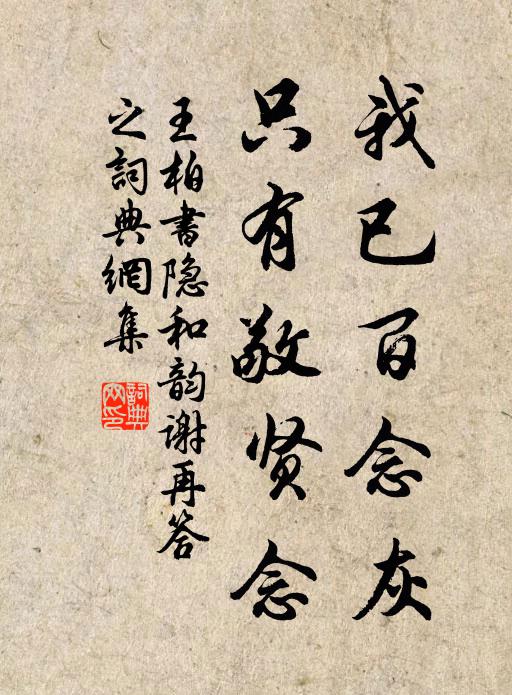 我已百念灰
只有敬贤念
王柏书隐和韵谢再答
之詞典網集
詞典網印